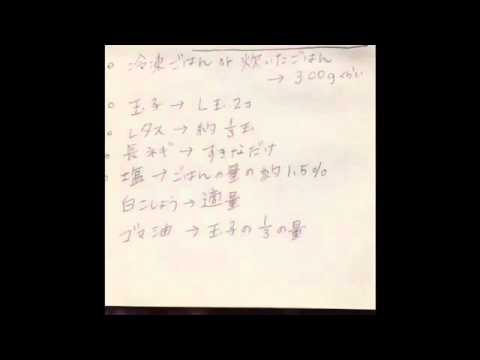 ○ 冷凍ごはん or 炊いたごはん
→ 300gくらい
○ 玉子 → L玉2コ
○ レタス → 約1/3玉
○ 長ネギ → すきなだけ
○ 塩 → ごはんの量の約1.5%
白こしょう → 適量
ゴマ油 → 玉子の1/3の量